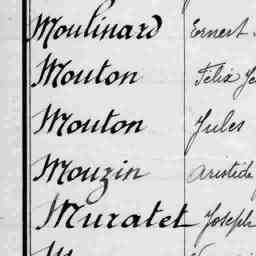 Moulinard Ernest
Mouton Félix
Mouton Jules
Mouzin Aristide
Muratet Joseph